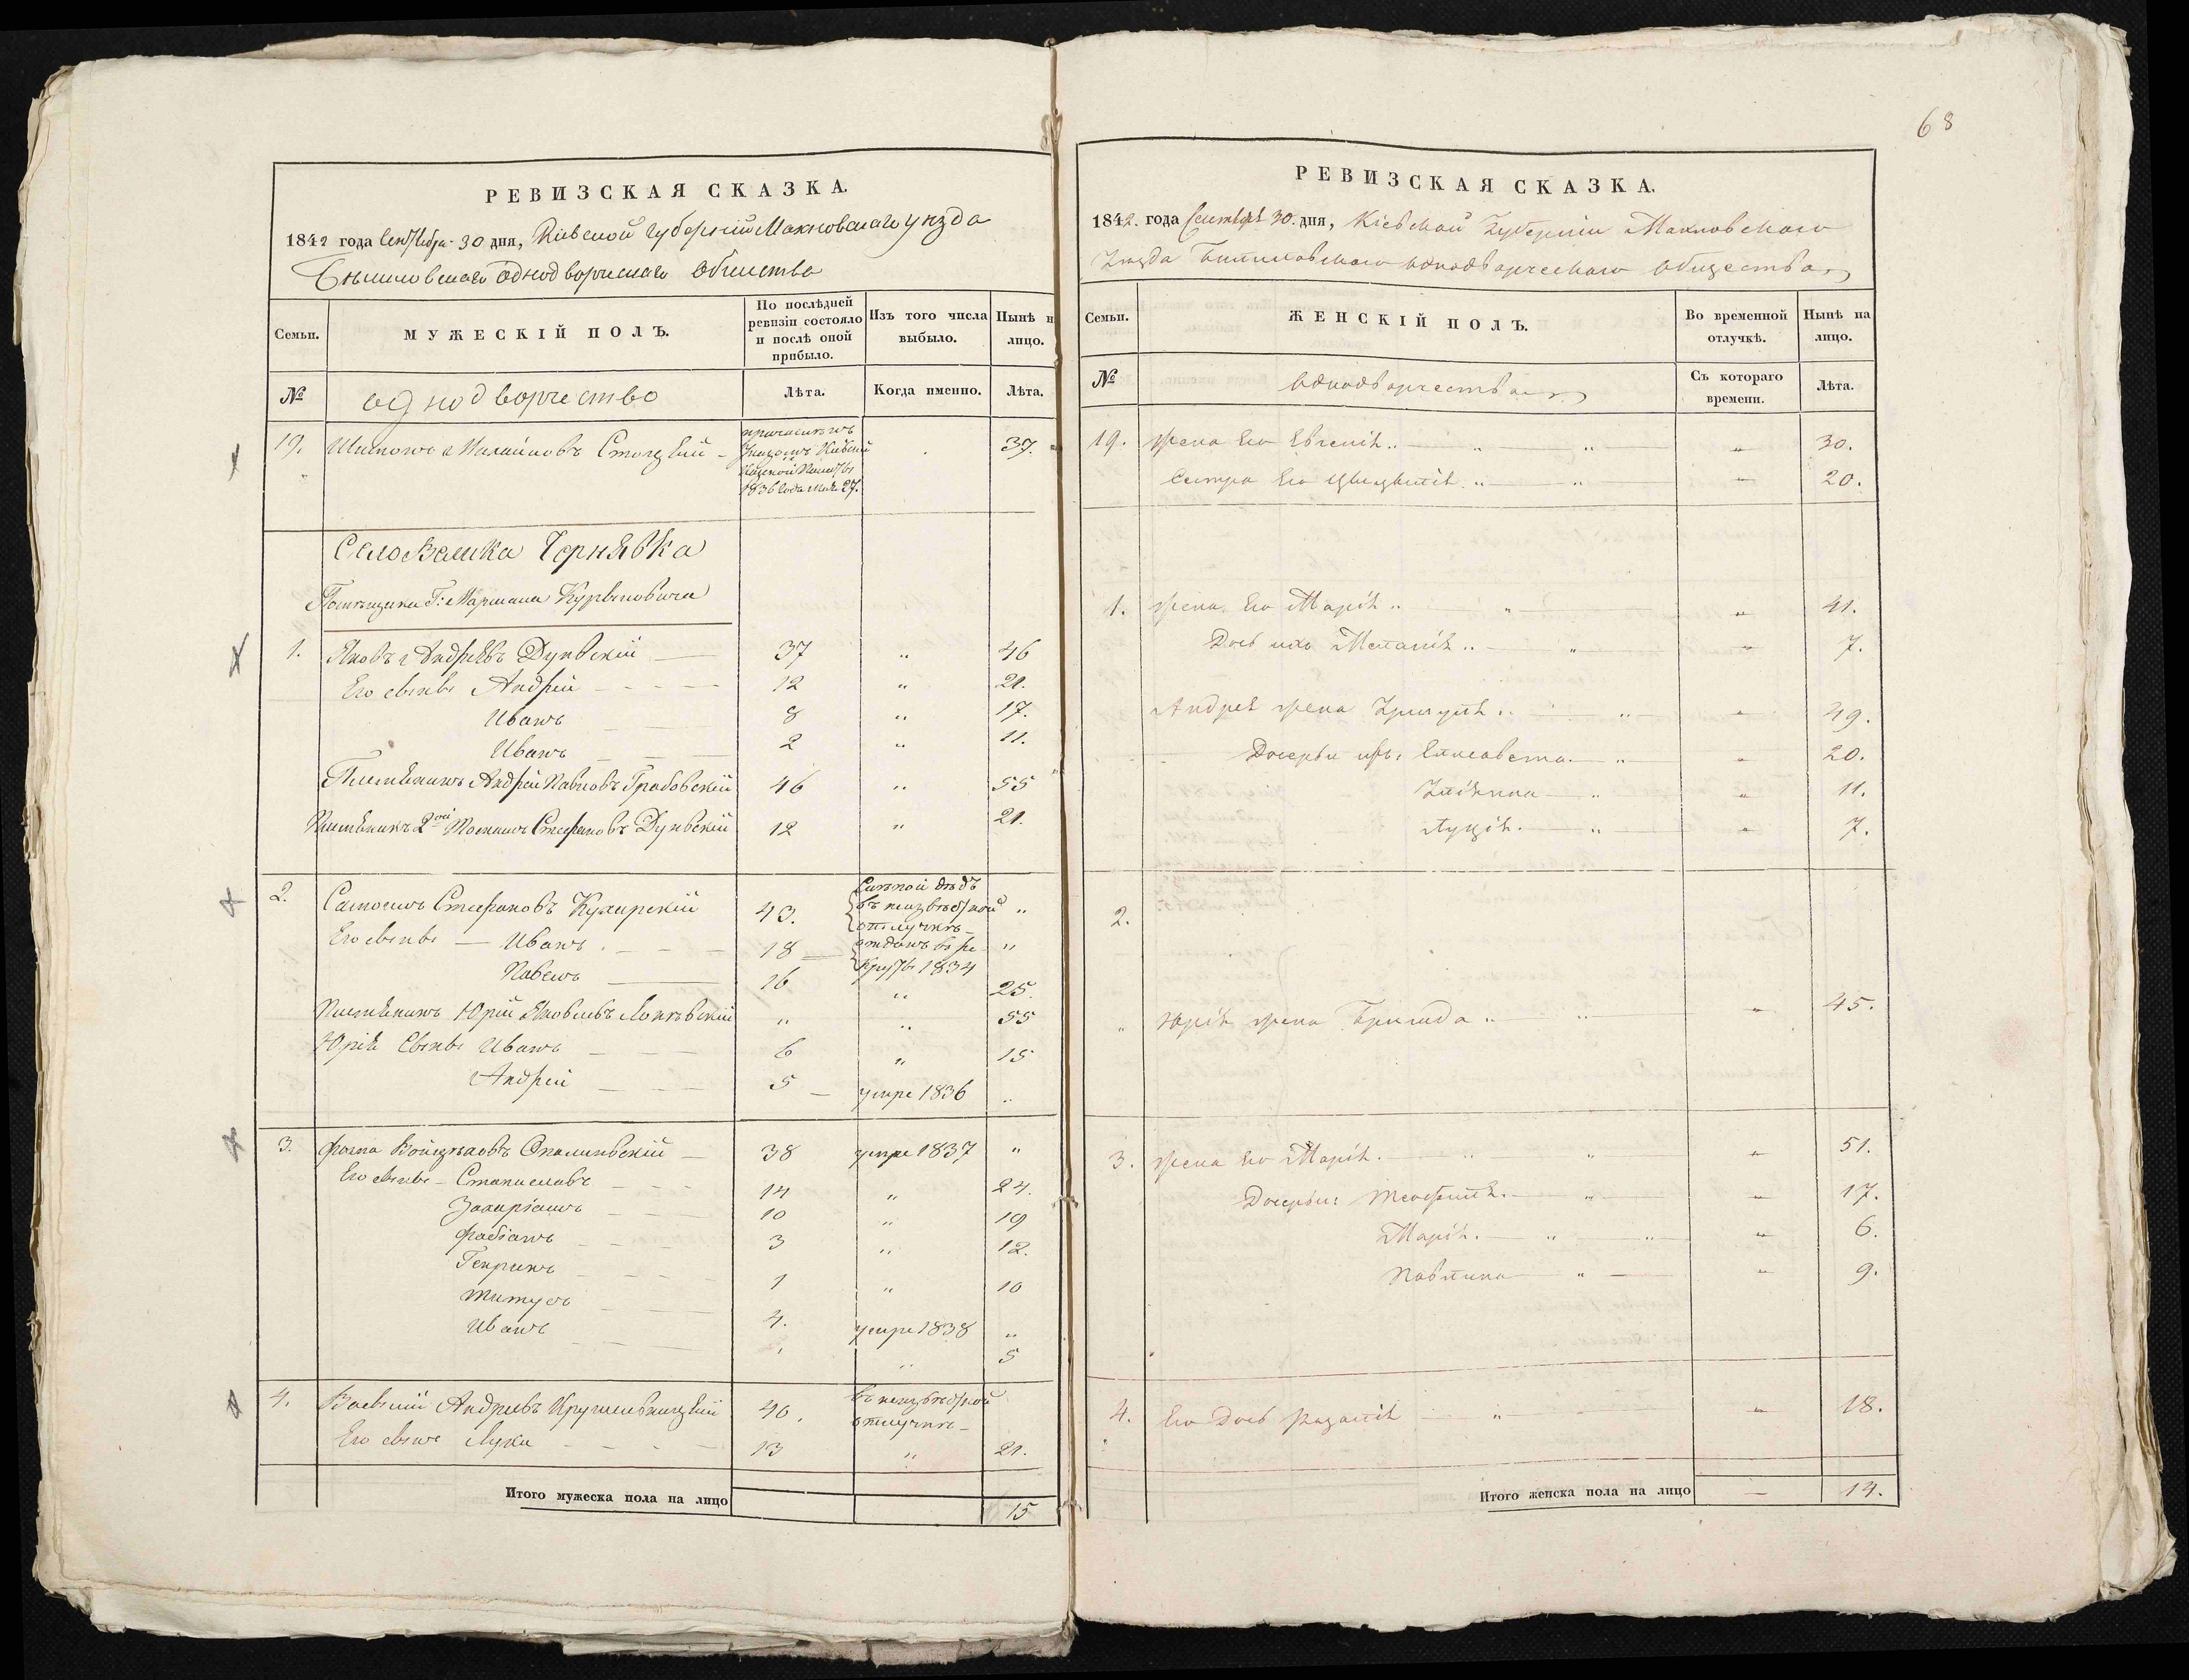 РЕВИЗСКАЯ СКАЗКА.
1842 года Сентября 30 дня, Кіевской губерніи Махновскаго уѣзда
Однодворческаго Общества
Семьи.
МУЖЕСКІЙ ПОЛЪ.
По послѣдней ревизіи состояло и послѣ оной прибыло.
Изъ того числа выбыло.
Нынѣ н лицо.
№
однодворчество
Лѣта.
Когда именно.
Лѣта.
19. Шимонъ Столецкій 37.
1836 года 27.
Село Чернявка
Помѣщика Г:
1. Яковъ Андреевъ Дунвскій 37 " 46
Его сынвь Андрей 12 " 21.
Иванъ 8 " 17.
Иванъ 2 " 11.
Племѣникъ Андрей Павловъ Грабовскій 46 " 55
Племѣникъ 2ой Томашъ Стефановъ Дунвскій 12 " 21.
2. Стефановъ Кухарскій 43. въ неизвѣстной отлучкѣ "
Его сынвь Иванъ 18 отданъ въ рекруты 1834 "
Павелъ 16 " 25.
Племѣникъ Юрій Яковлевъ " " 55
Юрія Сынвь Иванъ 6 " 15
Андрей 5 умре 1836 "
3. Фома Опалинвскій 38 умре 1837 "
Его сынвь Станиславъ 14 " 24.
Захаріашъ 10 " 19
Фабіанъ 3 " 12.
Генрикъ 1 " 10
Титусъ 4. умре 1838 "
Иванъ " " 5
4. Андреевъ 40. въ неизвѣстной отлучкѣ
Его сынъ Лука 13 " 21.
Итого мужеска пола на лицо 15
68
РЕВИЗСКАЯ СКАЗКА.
1842. года Сентября 30. дня, Кіевской Губерніи Махновскаго
Уѣзда Однодворческаго Общества
Семьи.
ЖЕНСКІЙ ПОЛЪ.
Во временной отлучкѣ.
Нынѣ на лицо.
№
Однодворчества
Съ котораго времени.
Лѣта.
19. Жена Его Евгенія " 30.
Сестра Его " 20.
1. Жена Его Марія " 41.
Дочь ихъ Меланія " 7.
Андрея жена " 49.
Дочерьи ихъ: Елисавета " 20.
Юліянна " 11.
Луція " 7.
2.
" Юрія жена Бригида " 45.
3. Жена Его Марія " 51.
Дочерьи: Теофилія " 17.
Марія " 6.
Павлина " 9.
4. Его Дочь Розалія " 18.
Итого женска пола на лицо — 14.